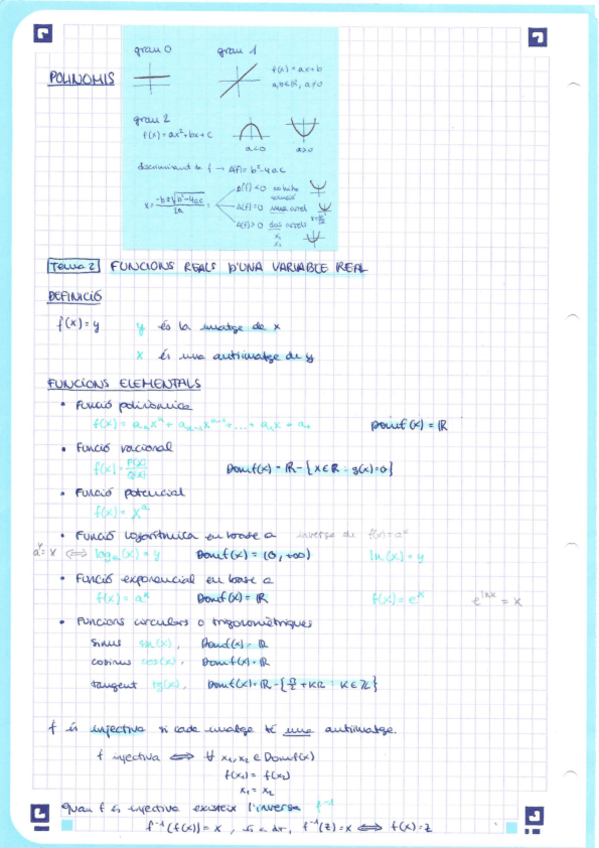 grau 0
grau 1
POLINOMIS
f(x) = ax+b
a,b∈ℝ, a≠0
grau 2
f(x) = ax²+bx+c
a<0
a>0
discriminant de f → Δ(f) = b²-4ac
x = (-b±√(b²-4ac))/2a =
Δ(f) < 0 no hi ha solució
Δ(f) = 0 una arrel
Δ(f) > 0 dos arrels
x₁
x₂
Tema 2 FUNCIONS REALS D'UNA VARIABLE REAL
DEFINICIÓ
f(x) = y y és la imatge de x
x és una antiimatge de y
FUNCIONS ELEMENTALS
• Funció polinòmica
f(x) = aₙxⁿ + aₙ₋₁xⁿ⁻¹ + ... + a₁x + a₀ Domf(x) = ℝ
• Funció racional
f(x) = P(x)/Q(x) Domf(x) = ℝ - {x∈ℝ : g(x)=0}
• Funció potencial
f(x) = xᵃ
• Funció logarítmica en base a inversa de f(x) = aˣ
aʸ = x ⟺ logₐ(x) = y Domf(x) = (0, +∞) ln(x) = y
• Funció exponencial en base a
f(x) = aˣ Domf(x) = ℝ f(x) = eˣ e^lnx = x
• Funcions circulars o trigonomètriques
sinus sin(x), Domf(x) = ℝ
cosinus cos(x), Domf(x) = ℝ
tangent tg(x), Domf(x) = ℝ - {π/2 + kπ : k∈ℤ}
f és injectiva si cada imatge té una antiimatge.
f injectiva ⟺ ∀ x₁,x₂ ∈ Domf(x)
f(x₁) = f(x₂)
x₁ = x₂
Quan f és injectiva existeix l'inversa f⁻¹
f⁻¹(f(x)) = x, és a dir, f⁻¹(z) = x ⟺ f(x) = z